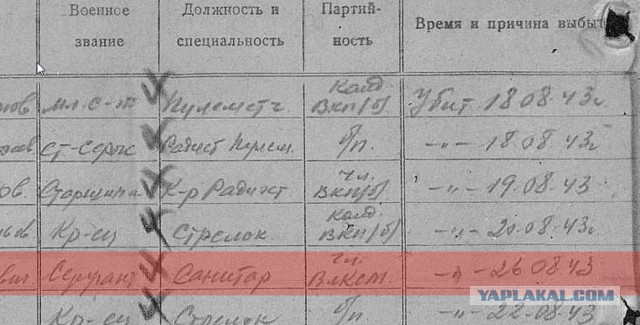 Военное звание Должность и специальность Партий-ность Время и причина выбыт
мл. с-т Пулеметч. Канд. ВКП(б) Убит 18.08.43г
ст-серж Радист Пулем. б/п. -"- 18.08.43г
ов. Старшина К-р Радист чл. ВКП(б) -"- 19.08.43
Кр-ец Стрелок Канд. ВКП(б) -"- 20.08.43г
Сержант Санитар чл. ВЛКСМ -"- 26.08.43
Кр-ец Стрелок б/п -"- 22.08.43
YAPLAKAL.COM